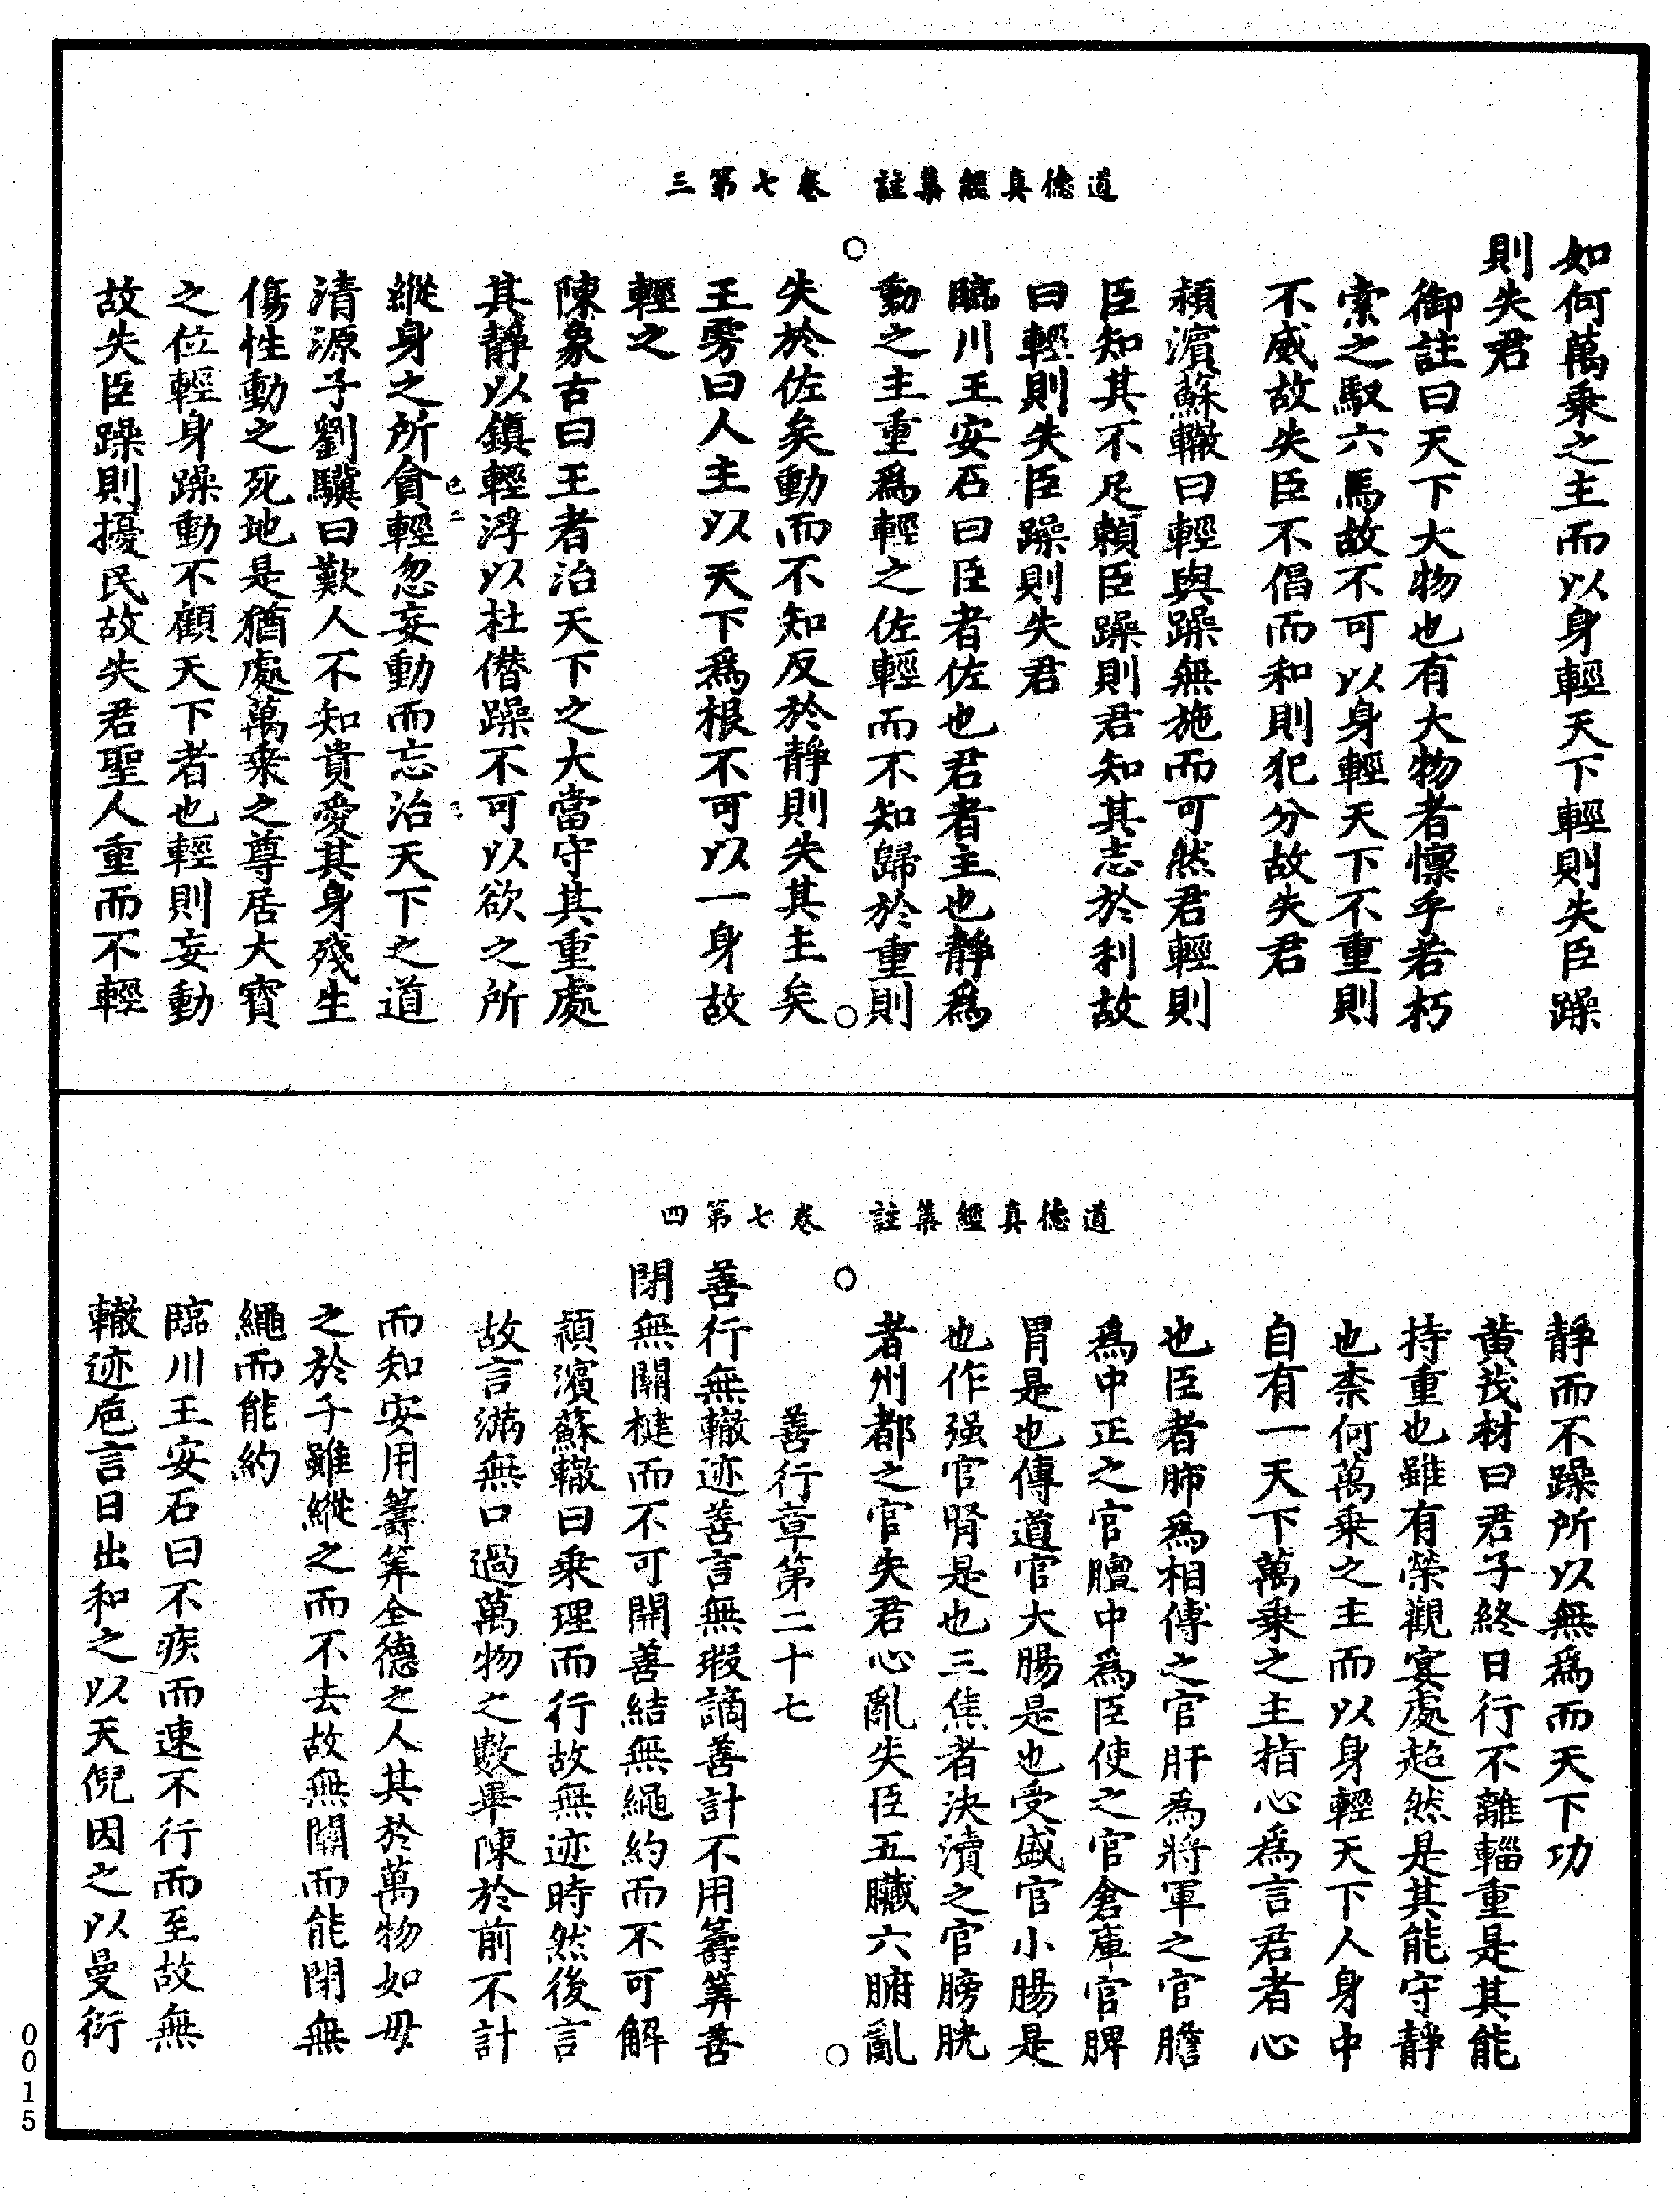 道德真經集註　卷七第三
如何萬乘之主而以身輕天下輕則失臣躁
則失君
御註曰天下大物也有大物者懍乎若朽
索之馭六馬故不可以身輕天下不重則
不威故失臣不倡而和則犯分故失君
潁濱蘇轍曰輕與躁無施而可然君輕則
臣知其不足賴臣躁則君知其志於利故
曰輕則失臣躁則失君
臨川王安石曰臣者佐也君者主也靜爲
動之主重爲輕之佐輕而不知歸於重則
失於佐矣動而不知反於靜則失其主矣
王雱曰人主以天下爲根不可以一身故
輕之
陳象古曰王者治天下之大當守其重處
其靜以鎮輕浮以杜僭躁不可以欲之所
縱身之所貪輕忽妄動而忘治天下之道
清源子劉驥曰歎人不知貴愛其身殘生
傷性動之死地是猶處萬乘之尊居大寶
之位輕身躁動不顧天下者也輕則妄動
故失臣躁則擾民故失君聖人重而不輕
道德真經集註　卷七第四
靜而不躁所以無爲而天下功
黃茂材曰君子終日行不離輜重是其能
持重也雖有榮觀宴處超然是其能守靜
也柰何萬乘之主而以身輕天下人身中
自有一天下萬乘之主指心爲言君者心
也臣者肺爲相傅之官肝爲將軍之官膽
爲中正之官膻中爲臣使之官倉庫官脾
胃是也傳道官大腸是也受盛官小腸是
也作强官腎是也三焦者決瀆之官膀胱
者州都之官失君心亂失臣五臟六腑亂
善行章第二十七
善行無轍迹善言無瑕謫善計不用籌筭善
閉無關楗而不可開善結無繩約而不可解
潁濱蘇轍曰乘理而行故無迹時然後言
故言滿無口過萬物之數畢陳於前不計
而知安用籌筭全德之人其於萬物如母
之於子雖縱之而不去故無關而能閉無
繩而能約
臨川王安石曰不疾而速不行而至故無
轍迹巵言日出和之以天倪因之以曼衍
0015